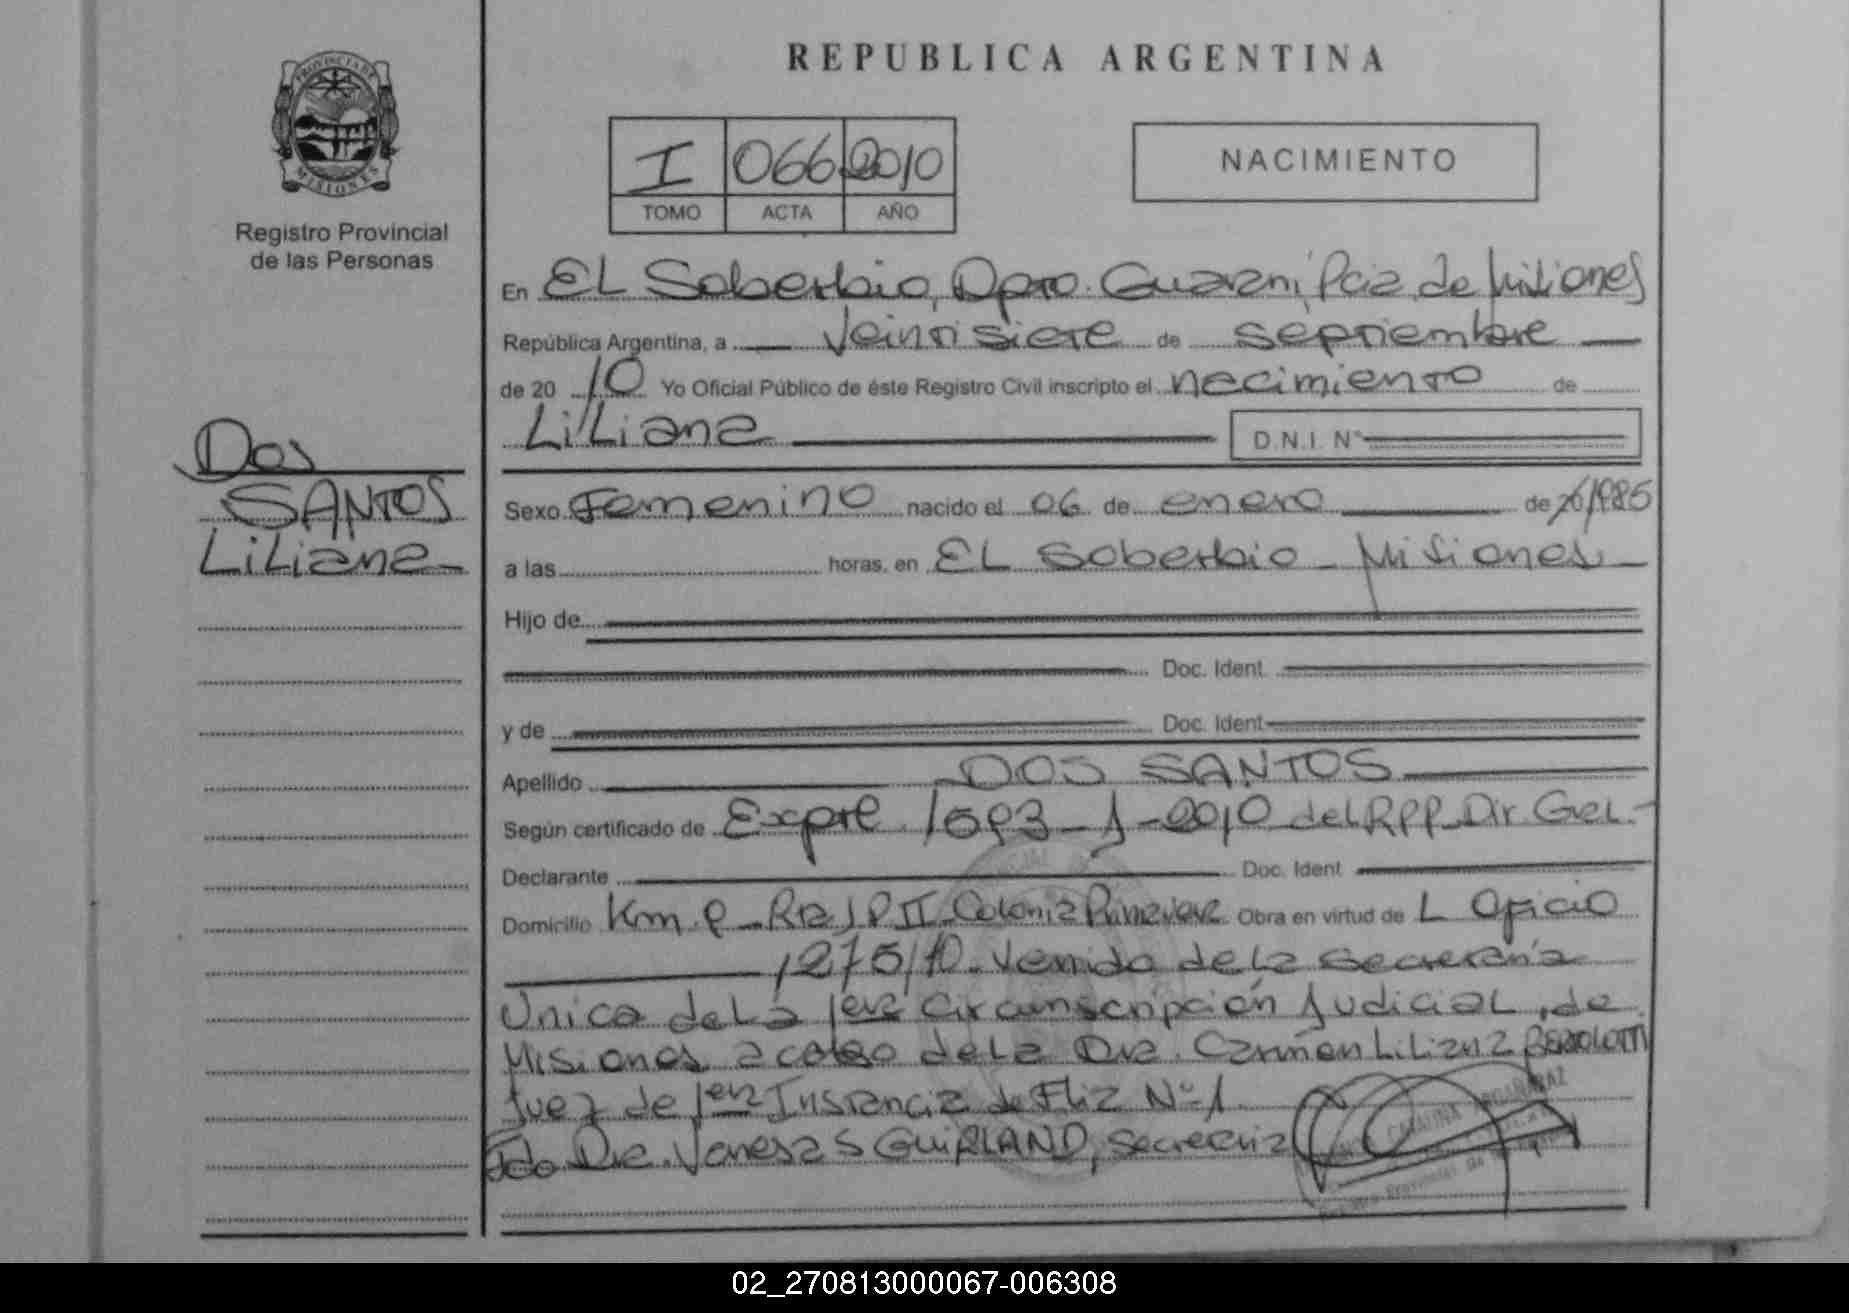 PROVINCIA DE
MISIONES
Registro Provincial
de las Personas
Dos
SANTOS
Liliana
REPUBLICA ARGENTINA
I 066 2010
TOMO ACTA AÑO
NACIMIENTO
En EL Soberbio, Dpto. Guarani, Pcia de Misiones
República Argentina, a veintisiete de septiembre
de 20 10 Yo Oficial Público de éste Registro Civil inscripto el nacimiento de
Liliana D.N.I. N°
Sexo Femenino nacido el 06 de enero de 1985
a las horas, en EL Soberbio - Misiones
Hijo de
Doc. Ident.
y de Doc. Ident
Apellido DOS SANTOS
Según certificado de Expte 1593-J-2010 del RPP Dir. Gral.
Declarante Doc. Ident
Domicilio Km. 9 - Rta J P II - Colonia Primavera Obra en virtud de L Oficio
1275/10 - venido de la Secretaría
Unica de La 1era Circunscripción Judicial, de
Misiones a cargo de La Dra. Carmen Liliana BERTOLOTTI
Juez de 1era Instancia de Flia N° 1
Fdo Dra. Vanesa S GUIRLAND, Secretaria
02_270813000067-006308